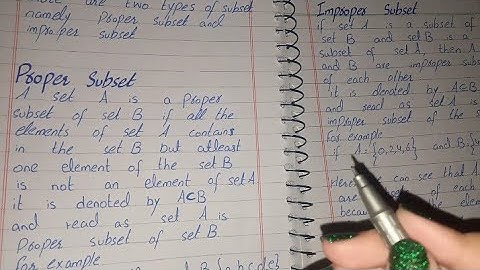 are two types of subset
namely Proper subset and
improper subset
Proper Subset
A set A is a proper
subset of set B if all the
elements of set A contains
in the set B but atleast
one element of the set B
is not an element of set A.
it is denoted by A⊂B
and read as set A is
Proper subset of set B.
for example
Improper Subset
if set A is a subset of
set B and set B is a
subset of set A, then A
and B are improper subs
of each other
it is denoted by A⊆B
and read as set A is
improper subset of the s
for example
if A = {0,2,4,6} and B = {4
Here we can see that A
are subset of each
because the elem